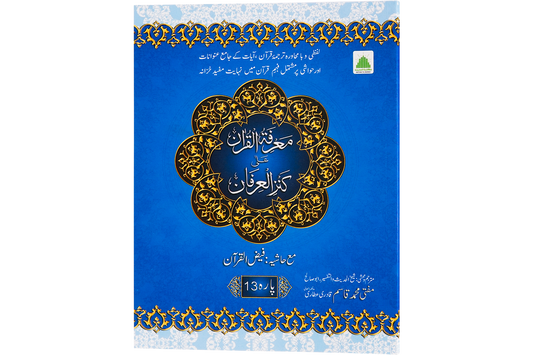 لفظی و با محاورہ ترجمۂ قرآن، آیات کے جامع عنوانات
اور حواشی پر مشتمل فہمِ قرآن میں نہایت مفید خزانہ
معرفۃ القرآن
علیٰ
کنز العرفان
مع حاشیہ: فیض القرآن
پارہ 13
مترجم و محشی: شیخ الحدیث والتفسیر ابو صالح
مفتی محمد قاسم قادری عطاری